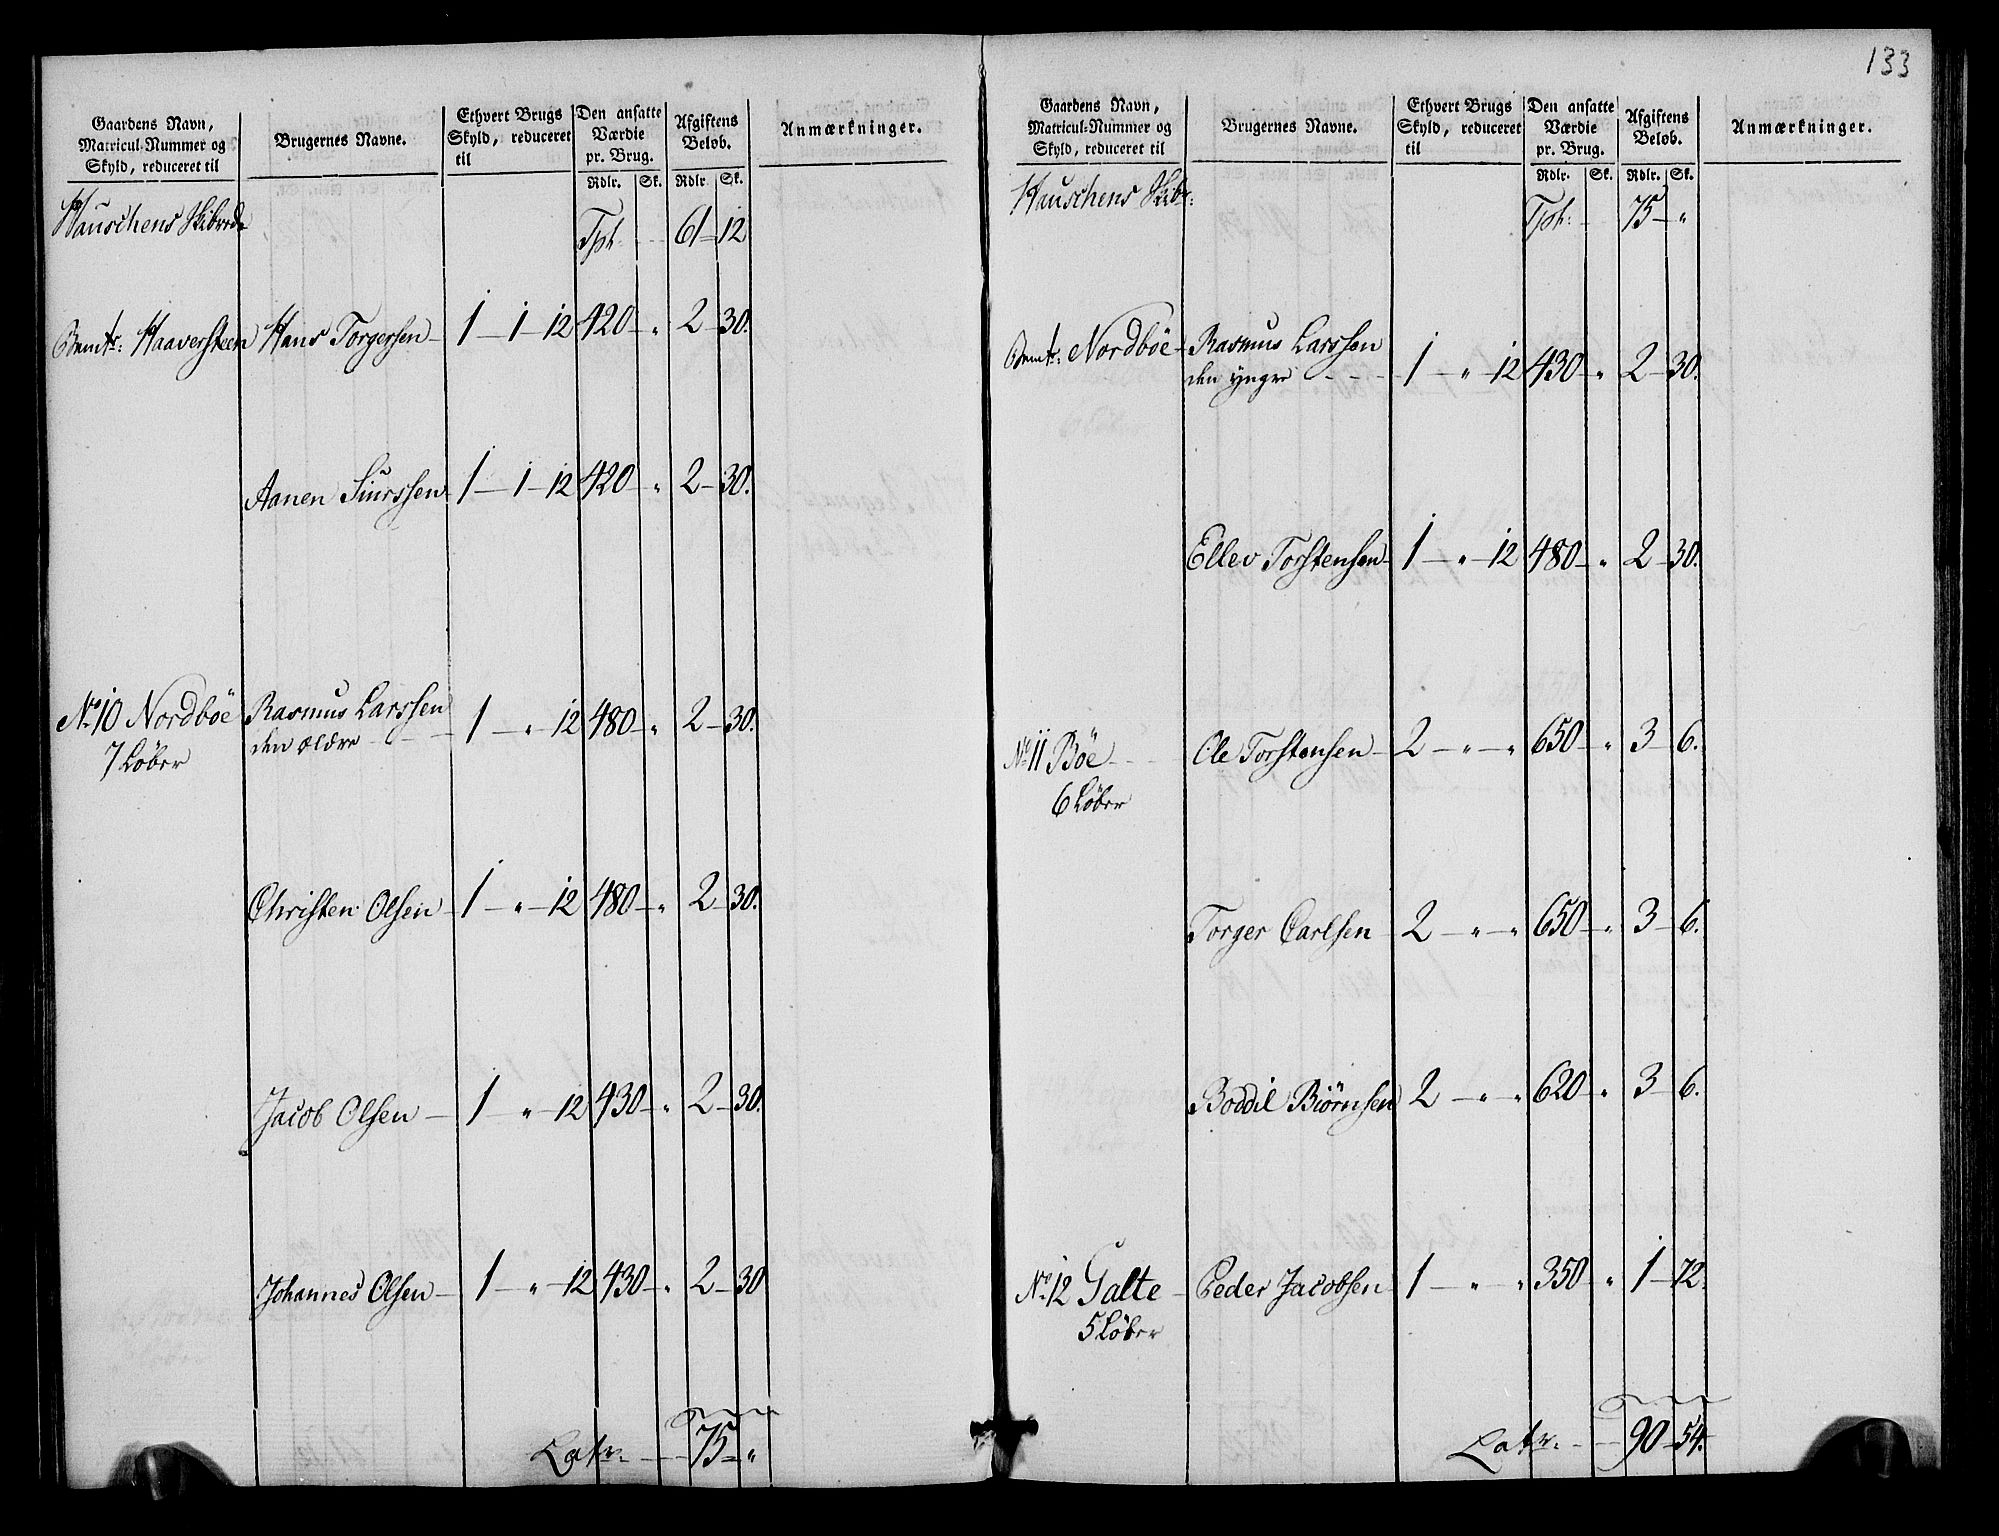 Gaardens Navn,
Matricul-Nummer og
Skyld, reduceret til
Brugernes Navne.
Ethvert Brugs
Skyld, reduceret
til
Den ansatte
Værdie
pr. Brug.
Rdlr. Sk.
Afgiftens
Beløb.
Rdlr. Sk.
Anmærkninger.
Hauschens Skibrede
Tpt: 61 - 12
Haaversteen Hans Torgersen - 1 - 1 - 12 420 - " 2 - 30.
Aanen Siurssen - 1 - 1 - 12 420 - " 2 - 30.
No. 10 Nordböe Rasmus Larssen
7 Löber den ældre - - - 1 - " - 12 480 - " 2 - 30.
Christen Olsen - 1 - " - 12 480 - " 2 - 30.
Jacob Olsen - 1 - " - 12 430 - " 2 - 30.
Johannes Olsen - 1 - " - 12 430 - " 2 - 30
Latr. - - 75 - "
133
Gaardens Navn,
Matricul-Nummer og
Skyld, reduceret til
Brugernes Navne.
Ethvert Brugs
Skyld, reduceret
til
Den ansatte
Værdie
pr. Brug.
Rdlr. Sk.
Afgiftens
Beløb.
Rdlr. Sk.
Anmærkninger.
Hauschens Skibr:
Tpt: - - 75 - "
Nordböe - Rasmus Larssen
den yngre - - - 1 - " - 12 430 - " 2 - 30.
Ellev Torstensen - 1 - " - 12 480 - " 2 - 30.
No. 11 Böe - - - Ole Torstensen - 2 - " - " 650 - " 3 - 6.
6 Löber
Torger Carlsen 2 - " - " 650 - " 3 - 6.
Boddil Biörnsen 2 - " - " 620 - " 3 - 6.
No. 12 Galte - Peder Jacobsen - 1 - " - " 350 - " 1 - 72.
5 Löber
Latr. - - 90 - 54.